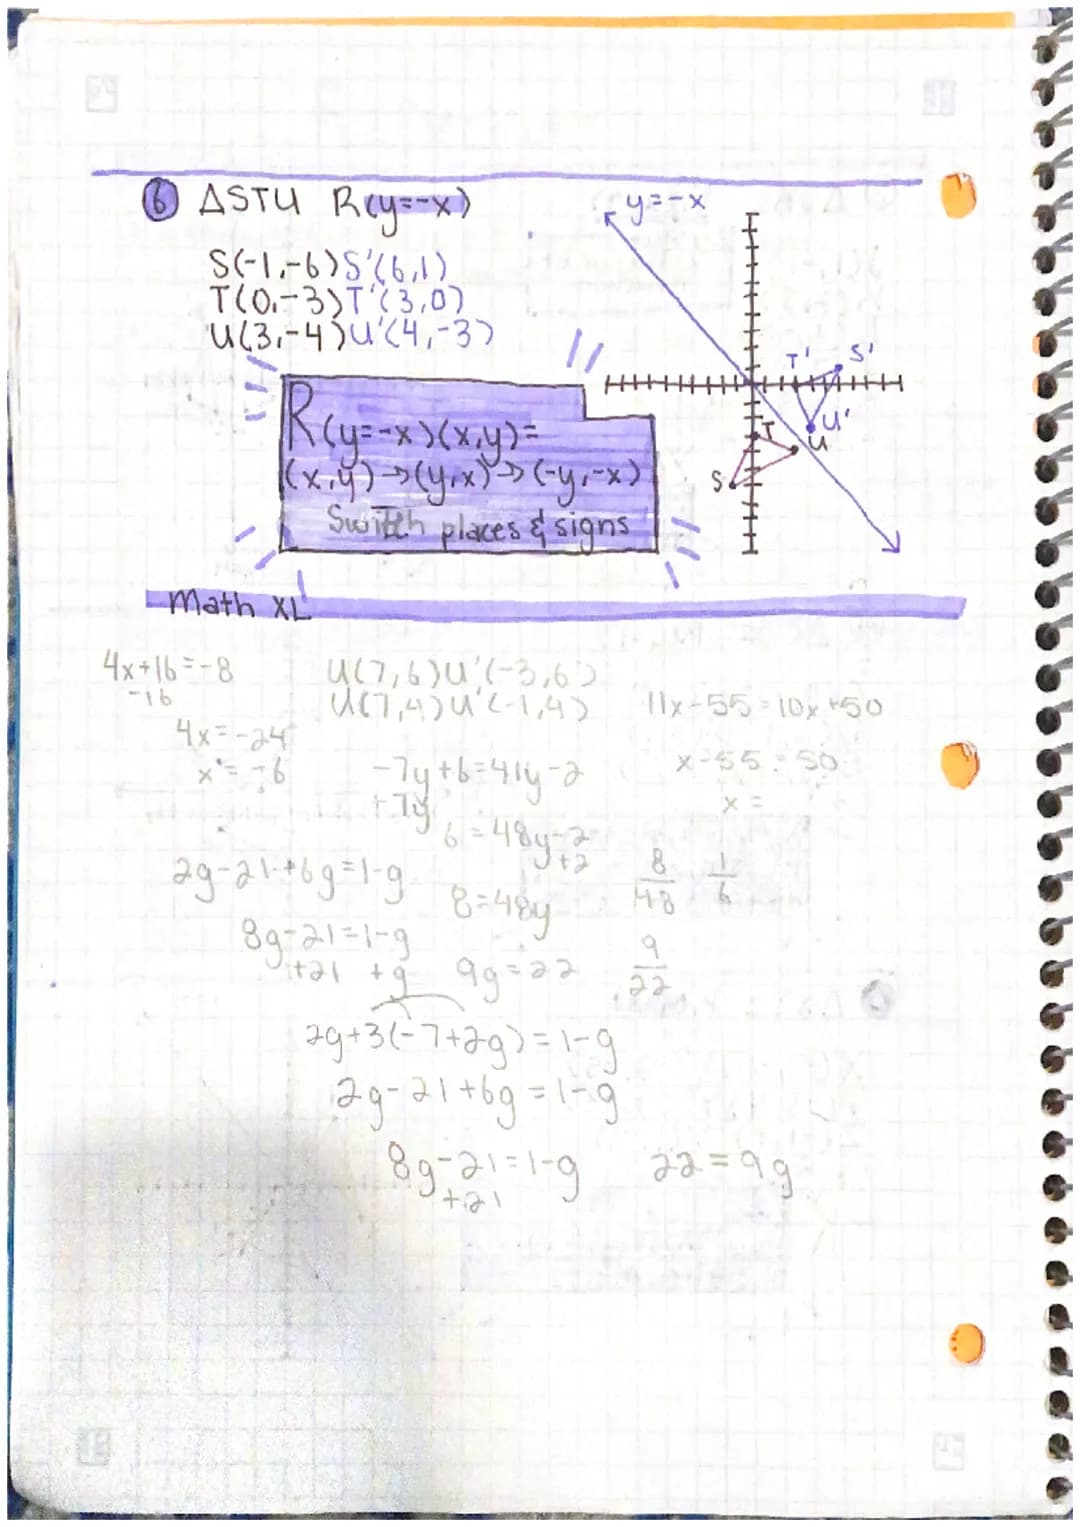 6 ΔSTU R(y=-x)
S(-1,-6) S'(6,1)
T(0,-3) T'(3,0)
U(3,-4) U'(4,-3)
y=-x
T' S'
U'
T
U
S
R(y=-x)(x,y)=
(x,y)→(y,x)→(-y,-x)
Switch places & signs
Math XL
4x+16=-8
-16
4x=-24
x=-6
U(7,6) U'(-3,6)
U(7,4) U'(-1,4)
11x-55=10x+50
x-55=50
x=
-7y+6=41y-2
+7y
6=48y-2
+2
8=48y
8/48 1/6
2g-21+6g=1-g
8g-21=1-g
+21 +g
9g=22
9/22
2g+3(-7+2g)=1-g
2g-21+6g=1-g
8g-21=1-g
+21
22=9g